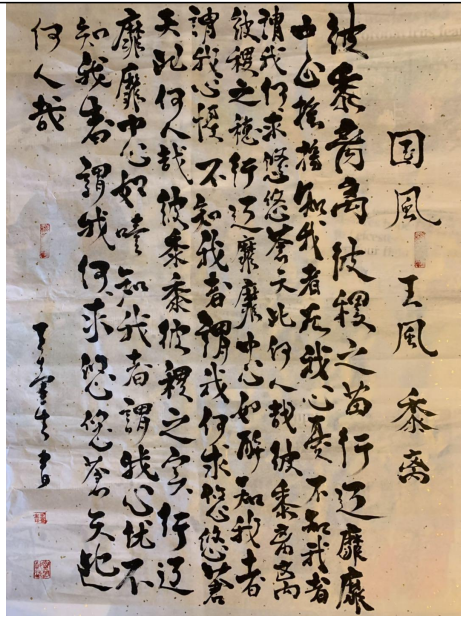 国風 王風 黍离
彼黍离离彼稷之苗行迈靡靡
中心摇摇知我者我心憂不知我者
謂我何求悠悠蒼天此何人哉彼黍离离
彼稷之穗行迈靡靡中心如醉知我者
謂我心憂不知我者謂我何求悠悠蒼
天此何人哉彼黍黍彼稷之实行迈
靡靡中心如噎知我者謂我心忧不
知我者謂我何求悠悠蒼天此
何人哉
書